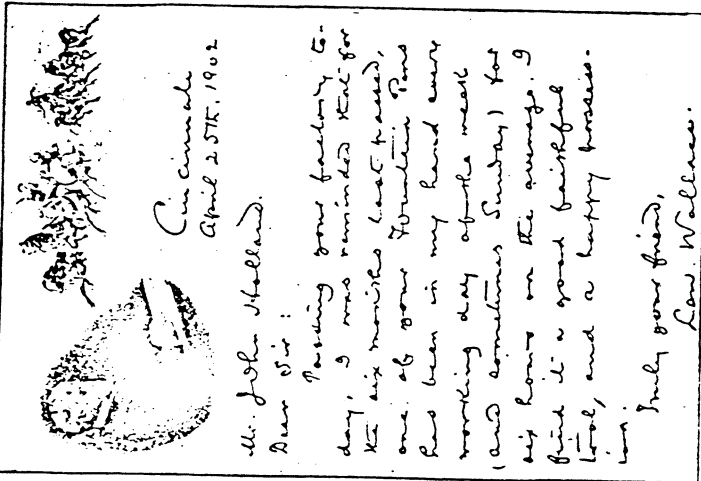 Cincinnati
April 25TH, 1902
Mr. John Holland.
Dear Sir:
Passing your factory to-
day, I was reminded that for
the six months last passed,
one of your Fountain Pens
has been in my hand every
working day of the week
(and sometimes Sunday) for
six hours on the average. I
find it a good faithful
tool, and a happy possess-
ion.
Truly your friend,
Lew. Wallace.